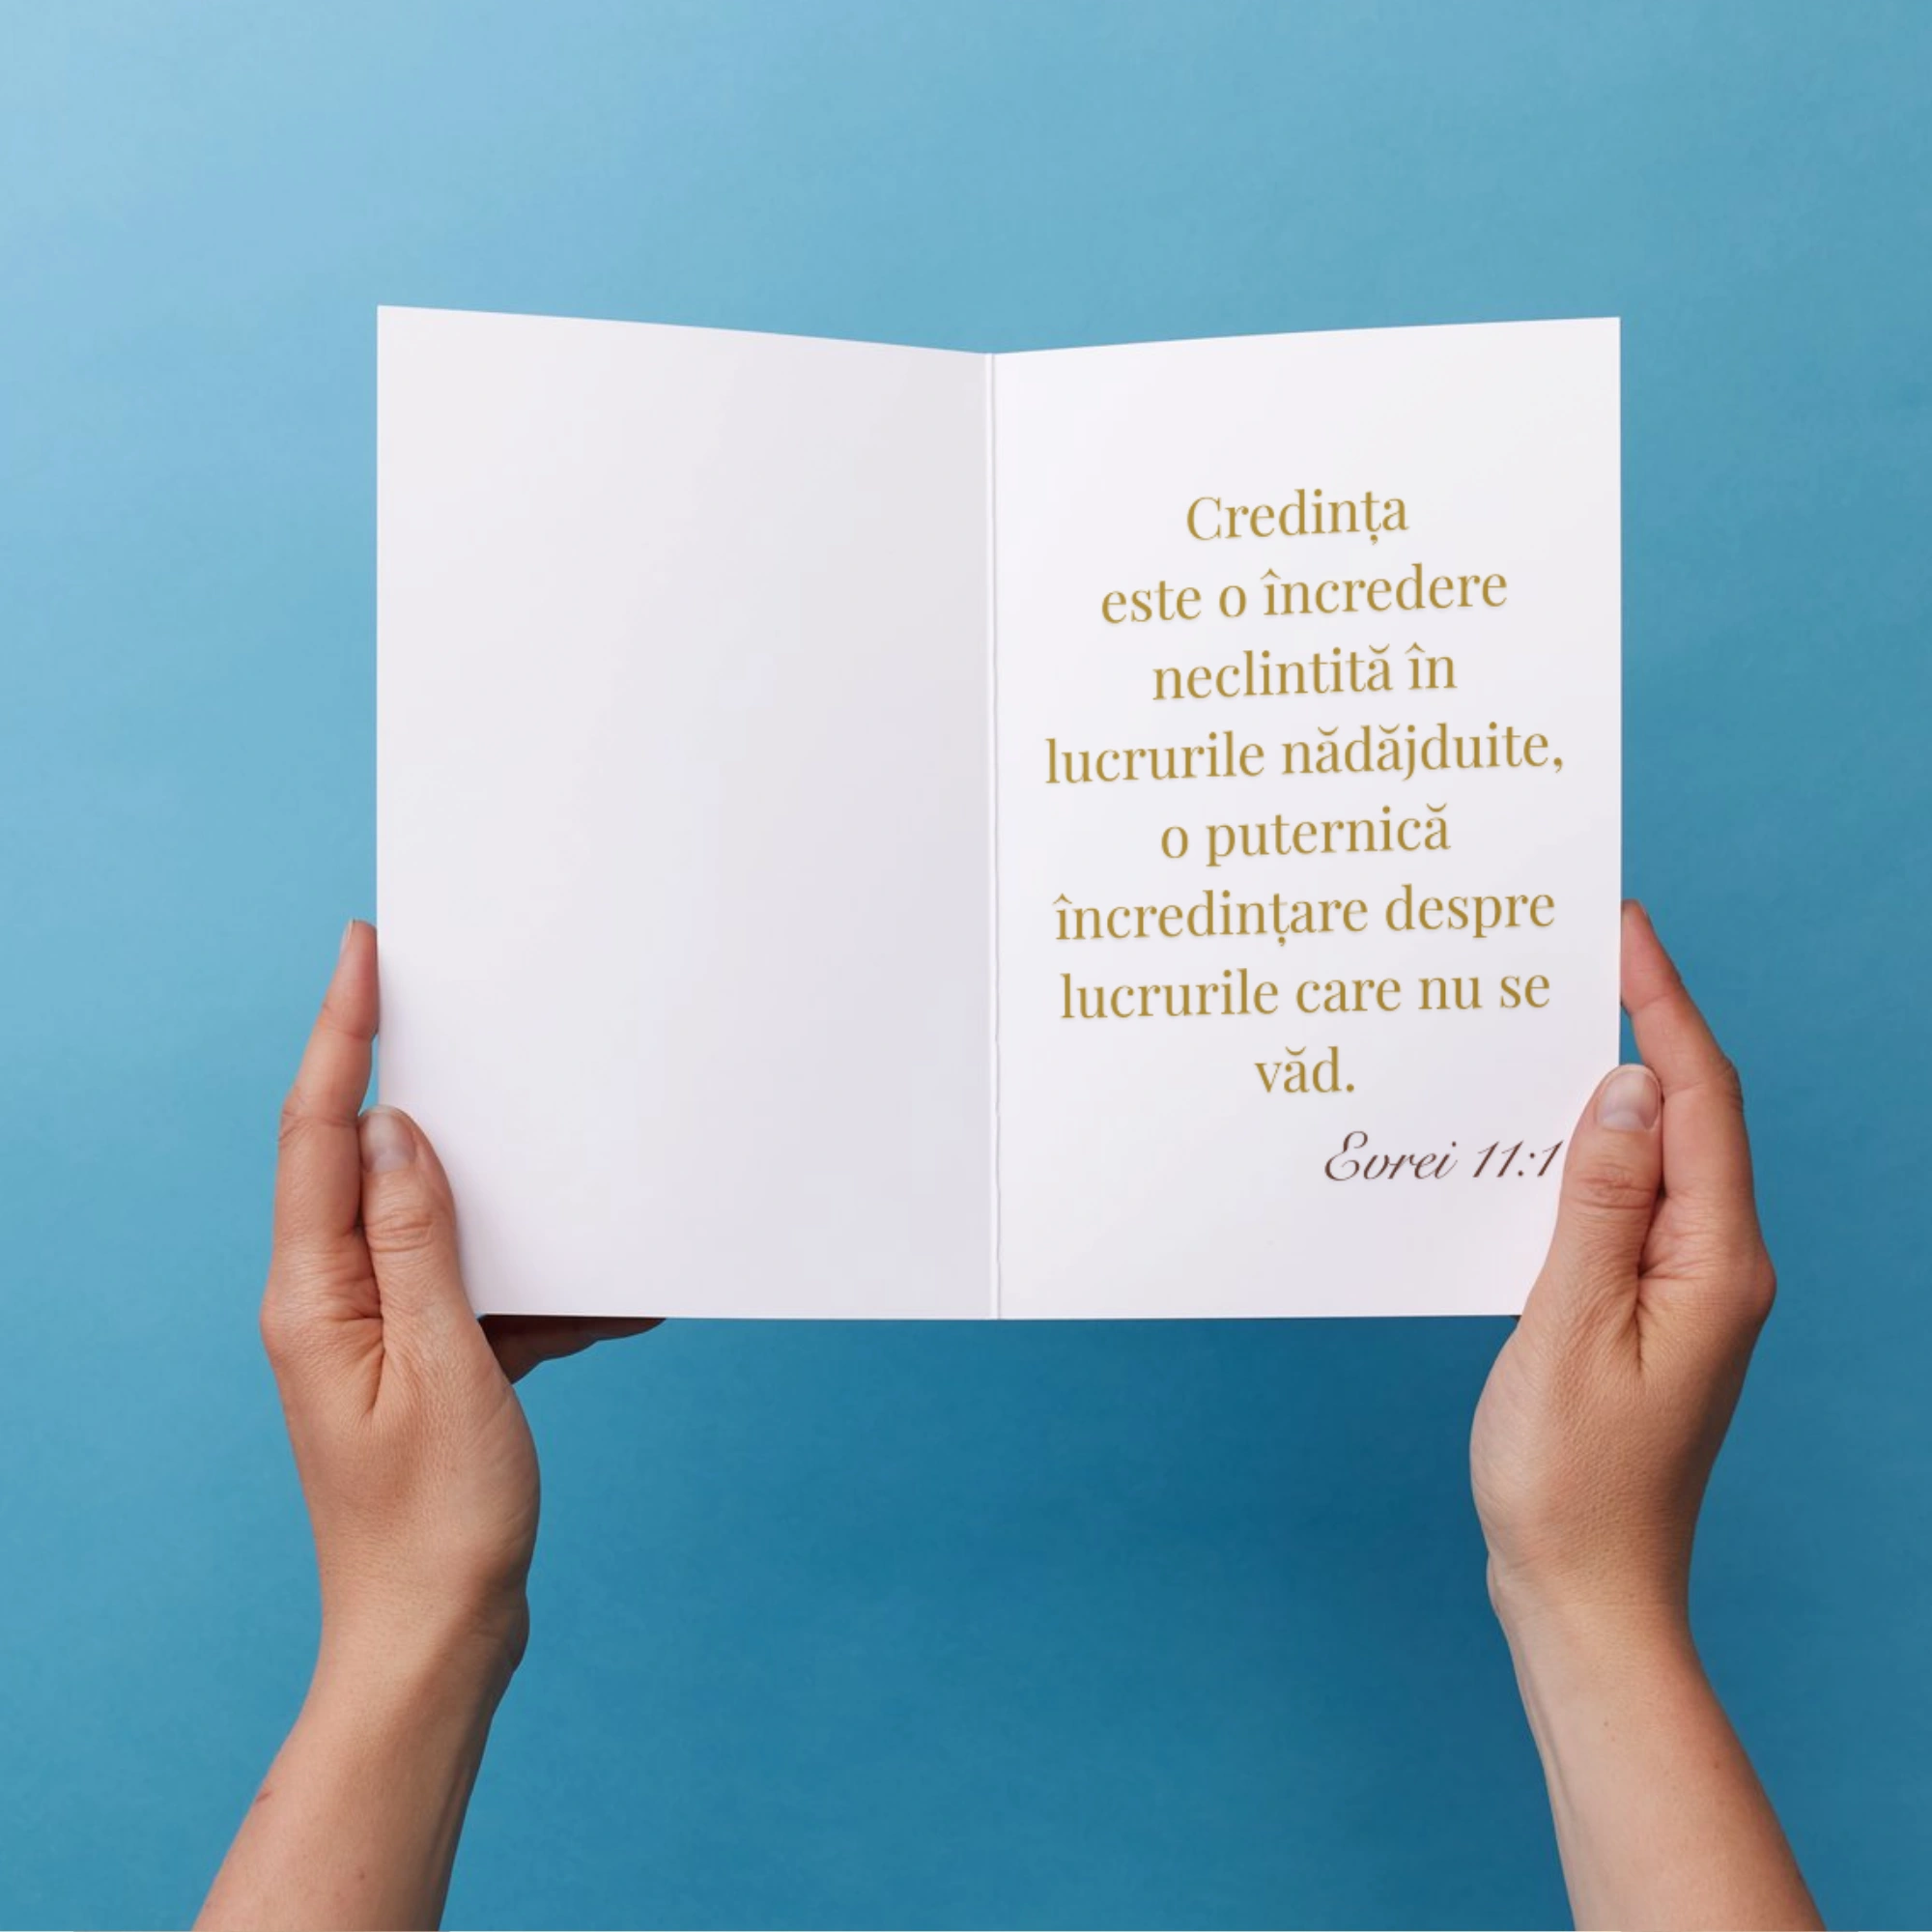 Credința
este o încredere
neclintită în
lucrurile nădăjduite,
o puternică
încredințare despre
lucrurile care nu se
văd.
Evrei 11:1